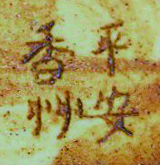 平安
香州